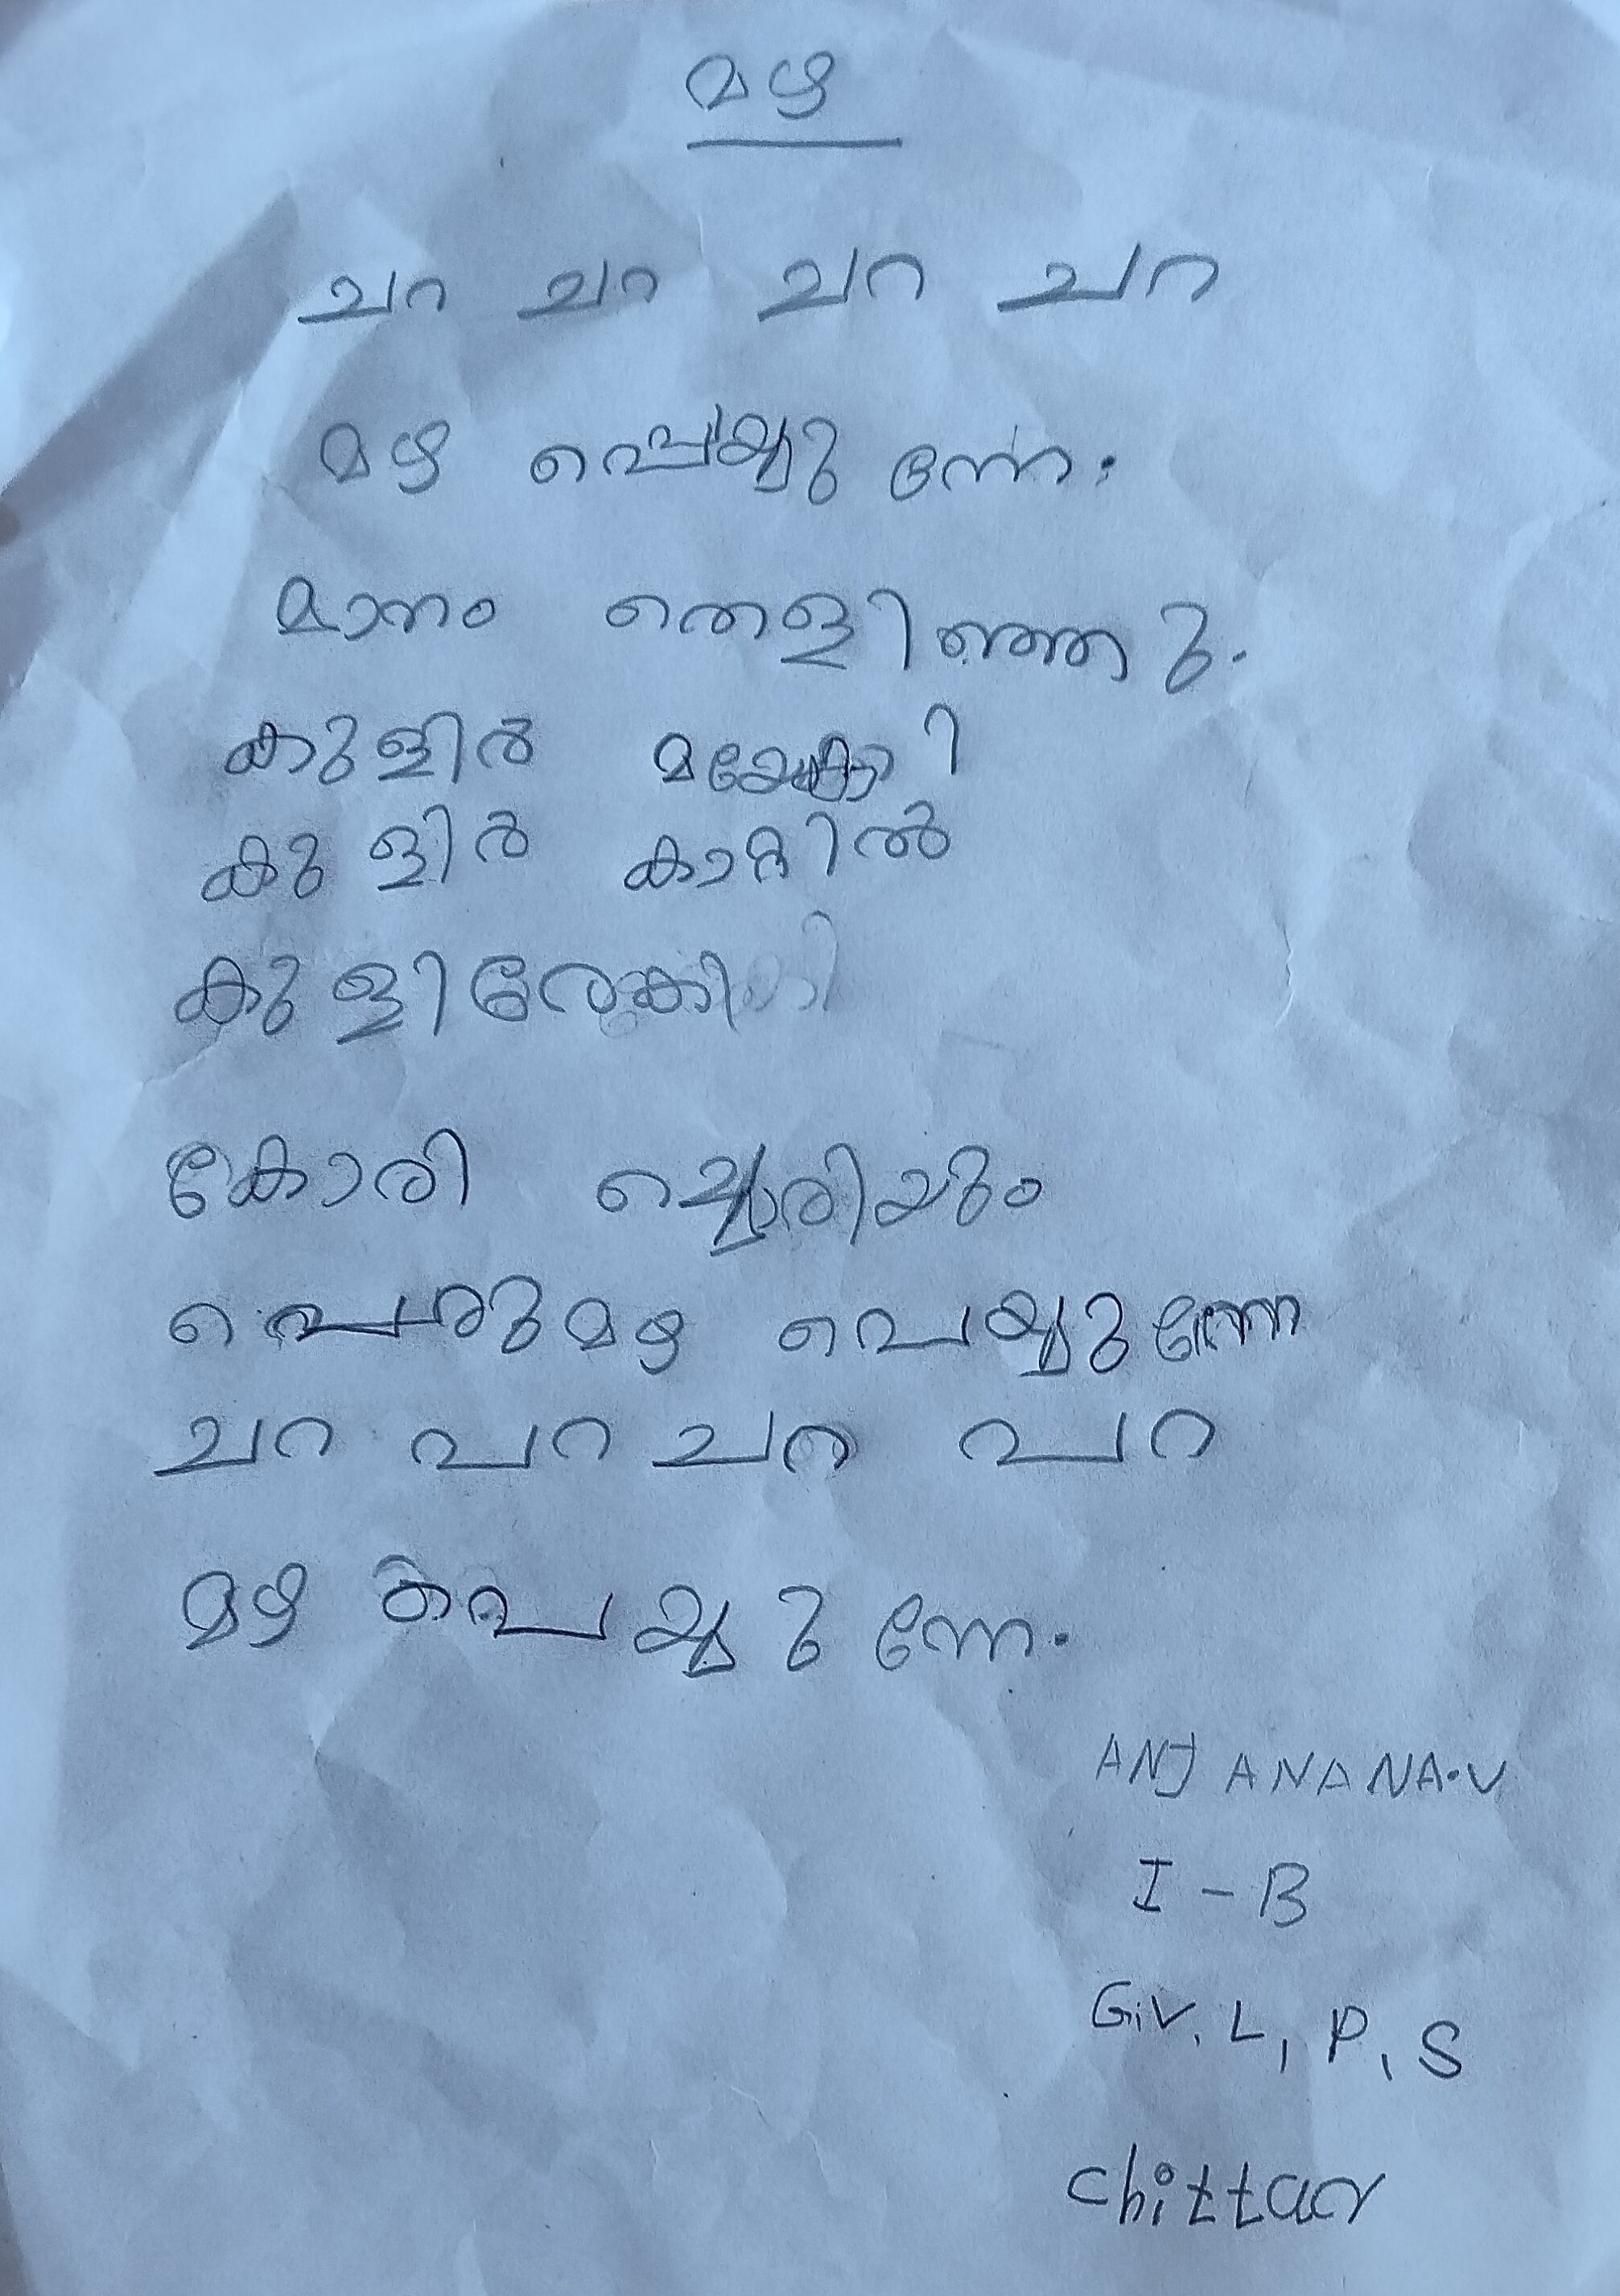 മഴ
ചറ ചറ ചറ ചറ
മഴ പെയ്യുന്നേ.
മാനം തെളിഞ്ഞു.
കുളിർ
കുളിർ കാറ്റിൽ
കുളിരേകി
കോരി ച്ചൊരിയും
പെരുമഴ പെയ്യുന്നേ
ചറ പറ ചറ പറ
മഴ പെയ്യുന്നേ.
ANJANANA.V
I - B
G.V. L, P, S
Chittar